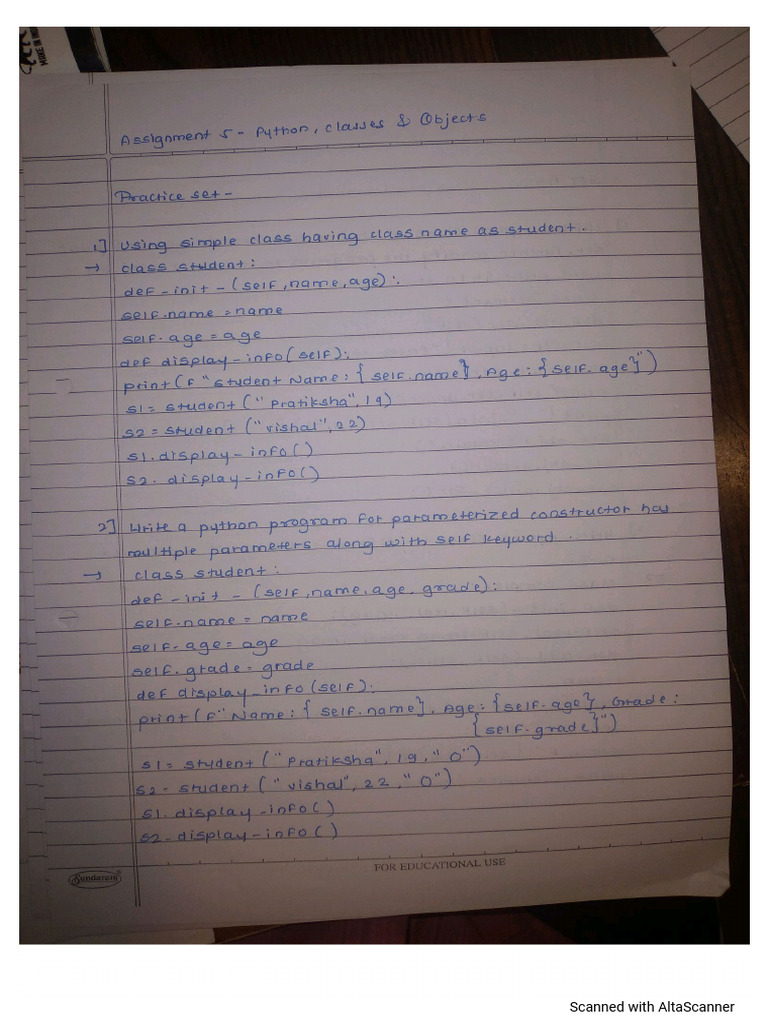 MAKE IN IN
Assignment 5 - Python, classes & Objects
Practice set -
1] Using simple class having class name as student.
→ class student:
def -init - (self, name, age):
self.name = name
self.age = age
def display-info(self):
print(f"student Name: {self.name}, Age: {self.age}")
s1 = student ("Pratiksha", 19)
s2 = student ("vishal", 22)
s1.display-info()
s2. display-info()
2] Write a python program for parameterized constructor has
multiple parameters along with self keyword.
→ class student:
def -init - (self, name, age, grade):
self.name = name
self.age = age
self.grade = grade
def display-info(self):
print(f"Name: {self.name}, Age: {self.age}, Grade:
{self.grade}")
s1 = student ("Pratiksha", 19, "O")
s2 - student ("vishal", 22, "O")
s1.display-info()
s2.display-info()
Sundaram
FOR EDUCATIONAL USE
Scanned with AltaScanner